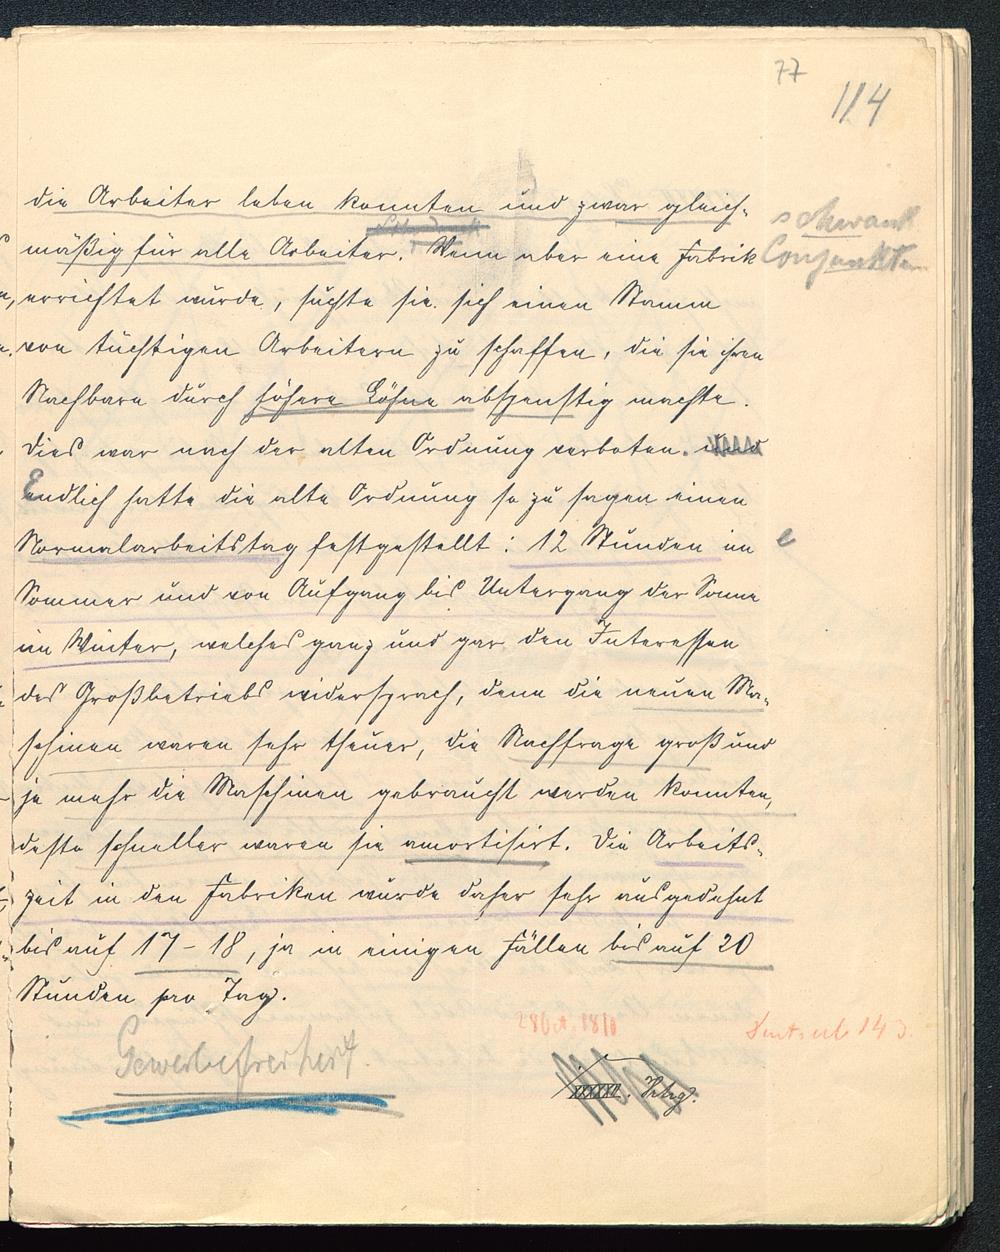 77
114
die Arbeiter leben konnten und zwar gleich-
mäßig für alle Arbeiter. Wenn aber eine Fabrik
schwank
Conjunktur
errichtet wurde, suchte sie sich einen Stamm
von tüchtigen Arbeitern zu schaffen, die sie ihren
Nachbarn durch höhere Löhne abspenstig machte.
Dies war nach der alten Ordnung verboten.
Endlich hatte die alte Ordnung so zu sagen einen
Normalarbeitstag festgestellt: 12 Stunden im
e
Sommer und von Aufgang bis Untergang der Sonne
im Winter, welches ganz und gar den Interessen
des Großbetriebs widersprach, denn die neuen Ma-
schinen waren sehr theuer, die Nachfrage groß und
je mehr die Maschinen gebraucht werden konnten,
desto schneller waren sie amortisirt. Die Arbeits-
zeit in den Fabriken wurde daher sehr ausgedehnt
bis auf 17-18, ja in einigen Fällen bis auf 20
Stunden pro Tag.
Gewerbefreiheit.
28 Oct. 1810
143.